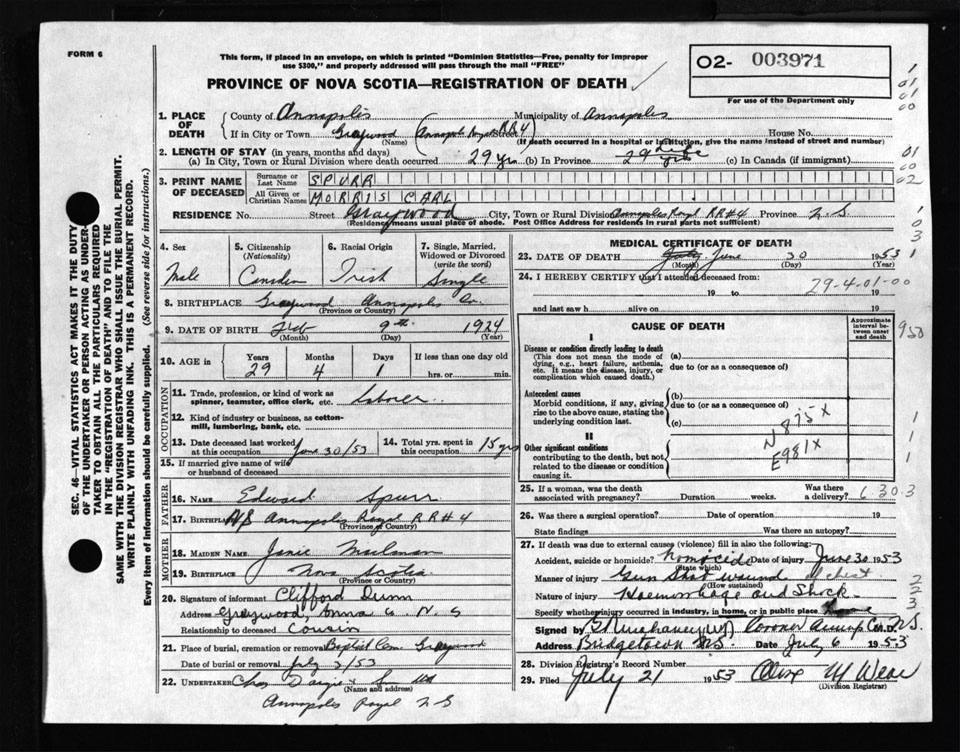 FORM 6
This form, if placed in an envelope, on which is printed "Dominion Statistics—Free, penalty for improper
use $300," and properly addressed will pass through the mail "FREE"
PROVINCE OF NOVA SCOTIA—REGISTRATION OF DEATH
02- 003971
For use of the Department only
1. PLACE OF DEATH
County of Annapolis Municipality of Annapolis
If in City or Town Graywood (Annapolis Royal RR4) Street House No.
(Name) (If death occurred in a hospital or institution, give the name instead of street and number)
2. LENGTH OF STAY (in years, months and days)
(a) In City, Town or Rural Division where death occurred 29 yrs (b) In Province 29 yrs life (c) In Canada (if immigrant)
3. PRINT NAME OF DECEASED
Surname or Last Name SPURR
All Given or Christian Names MORRIS CARL
RESIDENCE No. Street Graywood City, Town or Rural Division Annapolis Royal RR#4 Province N.S.
(Residence means usual place of abode. Post Office Address for residents in rural parts not sufficient)
4. Sex Male
5. Citizenship (Nationality) Canadian
6. Racial Origin Irish
7. Single, Married, Widowed or Divorced (write the word) Single
8. BIRTHPLACE Graywood Annapolis Co.
(Province or Country)
9. DATE OF BIRTH Feb 9th 1924
(Month) (Day) (Year)
10. AGE in Years 29 Months 4 Days 1 If less than one day old hrs. or min.
OCCUPATION
11. Trade, profession, or kind of work as spinner, teamster, office clerk, etc. Laborer
12. Kind of industry or business, as cotton-mill, lumbering, bank, etc.
13. Date deceased last worked at this occupation June 30/53
14. Total yrs. spent in this occupation 15 yrs
15. If married give name of wife or husband of deceased
FATHER
16. NAME Edward Spurr
17. BIRTHPLACE NS Annapolis Royal RR#4
(Province or Country)
MOTHER
18. MAIDEN NAME Janie
19. BIRTHPLACE Nova Scotia
(Province or Country)
20. Signature of informant Clifford Dunn
Address Graywood, Anna Co. N S
Relationship to deceased Cousin
21. Place of burial, cremation or removal Baptist Cem Graywood
Date of burial or removal July 3/53
22. UNDERTAKER Chas Dargie & Son Ltd
(Name and address)
Annapolis Royal N S
MEDICAL CERTIFICATE OF DEATH
23. DATE OF DEATH July June 30 1953
(Month) (Day) (Year)
24. I HEREBY CERTIFY that I attended deceased from:
19 to 19
29-4-01-00
and last saw h alive on 19
CAUSE OF DEATH
Approximate interval between onset and death
950
I
Disease or condition directly leading to death (a)
(This does not mean the mode of dying, e.g., heart failure, asthenia, etc. It means the disease, injury, or complication which caused death.)
due to (or as a consequence of)
Antecedent causes (b)
Morbid conditions, if any, giving rise to the above cause, stating the underlying condition last.
due to (or as a consequence of)
(c)
N 875X
E981X
II
Other significant conditions contributing to the death, but not related to the disease or condition causing it.
25. If a woman, was the death associated with pregnancy? Duration weeks. Was there a delivery?
6.30.3
26. Was there a surgical operation? Date of operation 19
State findings Was there an autopsy?
27. If death was due to external causes (violence) fill in also the following:
Accident, suicide or homicide? homicide Date of injury June 30 1953
(State which)
Manner of injury Gun Shot wound of chest
(How sustained)
Nature of injury Haemorrhage and Shock
Specify whether injury occurred in industry, in home, or in public place
Signed by Coroner Annap Co. N.S. M.D.
Address Bridgetown N.S. Date July 6 1953
28. Division Registrar's Record Number
29. Filed July 21 1953
(Division Registrar)
SEC. 46—VITAL STATISTICS ACT MAKES IT THE DUTY
OF THE UNDERTAKER OR PERSON ACTING AS UNDER-
TAKER TO OBTAIN ALL THE PARTICULARS REQUIRED
IN THE "REGISTRATION OF DEATH" AND TO FILE THE
SAME WITH THE DIVISION REGISTRAR WHO SHALL ISSUE THE BURIAL PERMIT.
WRITE PLAINLY WITH UNFADING INK. THIS IS A PERMANENT RECORD.
Every item of information should be carefully supplied. (See reverse side for instructions.)